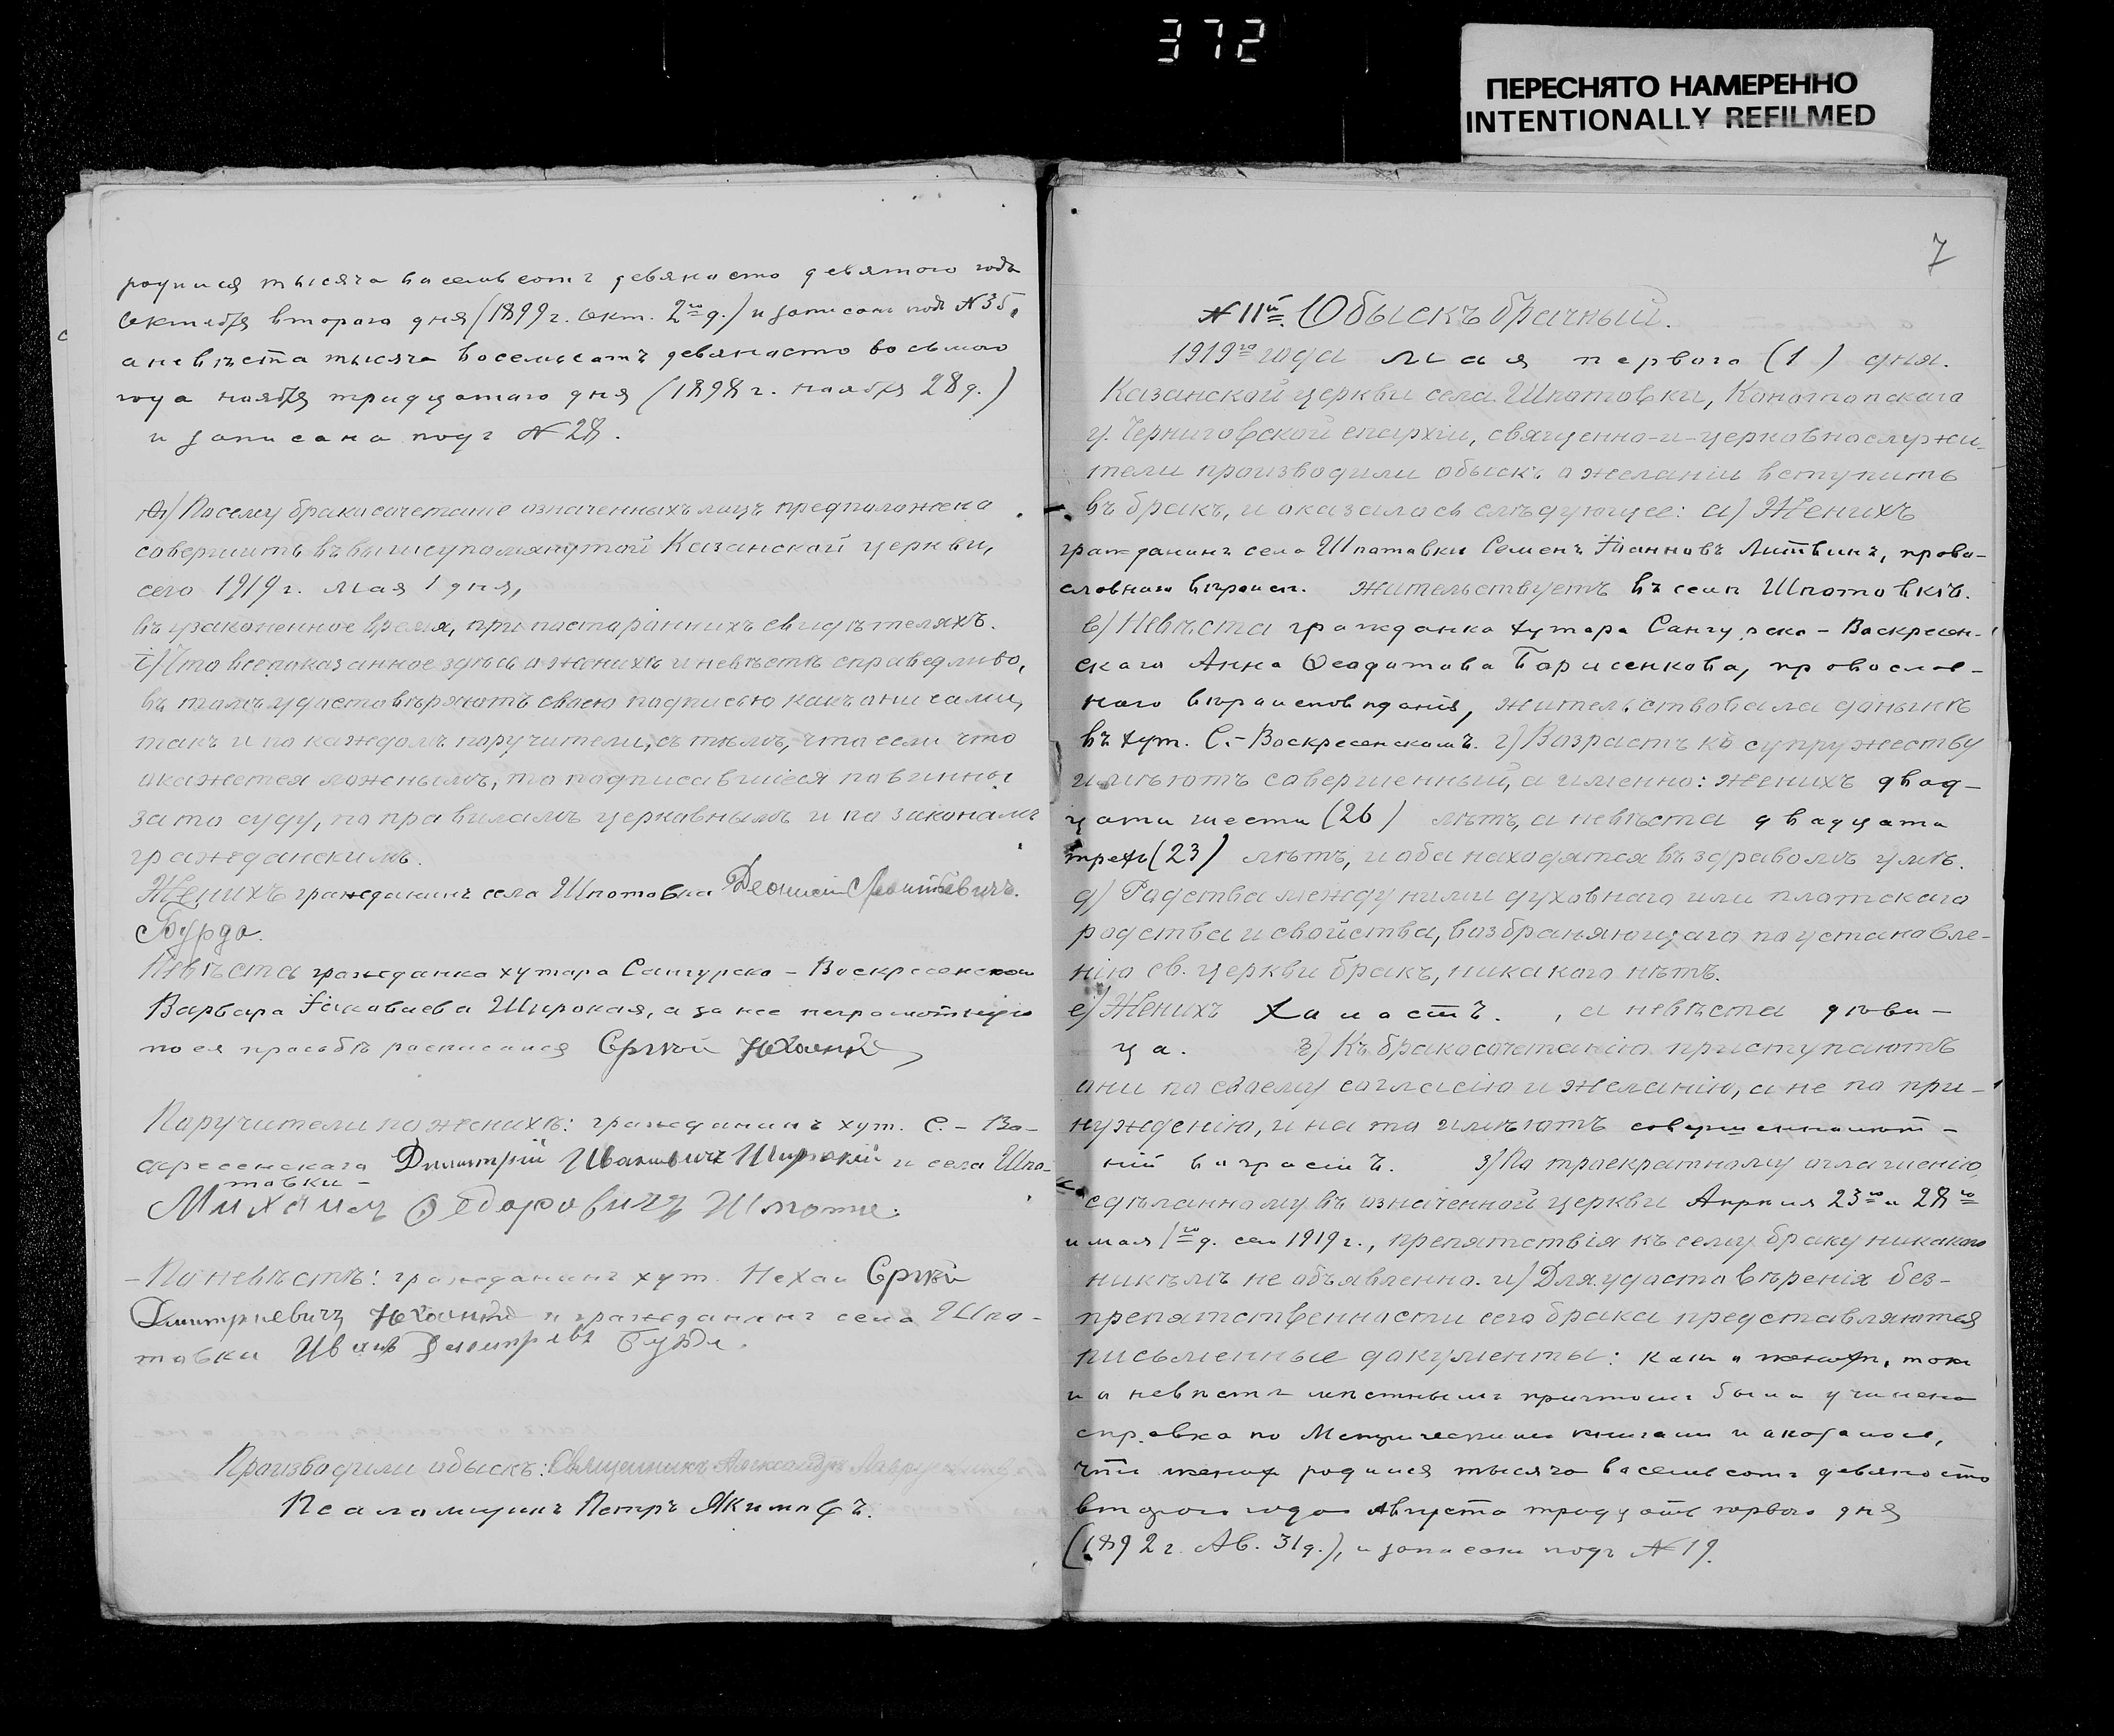 372
ПЕРЕСНЯТО НАМЕРЕННО
INTENTIONALLY REFILMED
родился тысяча васемьсотъ девяносто девятого года
Октября второго дня (1899 г. Окт. 2го д.) и записанъ подъ № 35,
а невѣста тысяча восемьсотъ девяносто восьмого
года ноября тридцатаго дня (1898 г. ноября 28 д.)
и записана подъ № 28.
Посему бракосочетание означенныхъ лицъ предположено
совершить въ вышеупомянутой Казанской церкви,
сего 1919 г. мая 1 дня,
въ узаконенное время, при постороннихъ свидѣтеляхъ.
i) Что все показанное здѣсь о женихѣ и невѣстѣ справедливо,
въ томъ удостовѣряютъ своею подписью какъ они сами,
такъ и по каждомъ поручители, съ тѣмъ, что если что
окажется ложнымъ, то подписавшіеся повинны
за то суду, по правиламъ церковнымъ и по законамъ
гражданскимъ.
Женихъ гражданинъ села Шпотовки
Бурда.
Невѣста гражданка хутора Сангурско-Воскресенскаго
Варвара Іаковлева Широкая, а за нее неграмотную
по ея просьбѣ расписался Сргѣй
Поручители по женихѣ: гражданинъ хут. С.-Во-
скресенскаго Дмитрій Ивановичъ Широкій и села Шпо-
товки -
Михаилъ Федоровичъ Шпота.
- По невѣстѣ: гражданинъ хут. Нехаи Сргѣй
Дмитриевичъ и гражданинъ села Шпо-
товки Иванъ Дмитріевъ Бурда.
Производили обыскъ: Священникъ Александръ
Псаломщикъ Петръ Якимовъ.
7
№ 11й. Обыскъ брачный.
1919го года мая первого (1) дня.
Казанской церкви села Шпотовки, Конотопскаго
у. Черниговской епархіи, священно-и-церковнослужи-
тели производили обыскъ о желаніи вступить
въ бракъ, и оказалось слѣдующее: а) Женихъ
гражданинъ села Шпотовки Семенъ Іоанновъ Литвинъ, право-
славнаго вѣроисп. жительствуетъ въ селѣ Шпотовкѣ.
в) Невѣста гражданка хутора Сангурско-Воскресен-
скаго Анна Феодотова Борисенкова, православ-
наго вѣроисповѣданія, жительствовала донынѣ
въ хут. С.-Воскресенскомъ. г) Возрастъ къ супружеству
имѣютъ совершенный, а именно: женихъ двад-
цати шести (26) лѣтъ, а невѣста двадцати
трехъ (23) лѣтъ, и оба находятся въ здравомъ умѣ.
д) Родства между ними духовнаго или плотскаго
родства и свойства, возбраняющаго по установле-
нію св. церкви бракъ, никакого нѣтъ.
е) Женихъ холостъ. , а невѣста дѣви-
ца. ж) Къ бракосочетанію приступаютъ
они по своему согласію и желанію, а не по при-
нужденію, и на то имѣютъ совершеннолѣт-
ній возрастъ. з) По троекратному оглашенію,
сдѣланному въ означенной церкви Апрѣля 23го и 28го
и мая 1го д. сего 1919 г., препятствія къ сему браку никакого
никѣмъ не объявленно. и) Для удостовѣренія без-
препятственности сего брака представляются
письменные документы: какъ о женихѣ, такъ
и о невѣстѣ мѣстнымъ причтомъ была учинена
справка по Метрическимъ книгамъ и оказалось,
что женихъ родился тысяча васемьсотъ девяносто
второго года Августа тридцать первого дня
(1892 г. Ав. 31 д.), и записанъ подъ № 19.